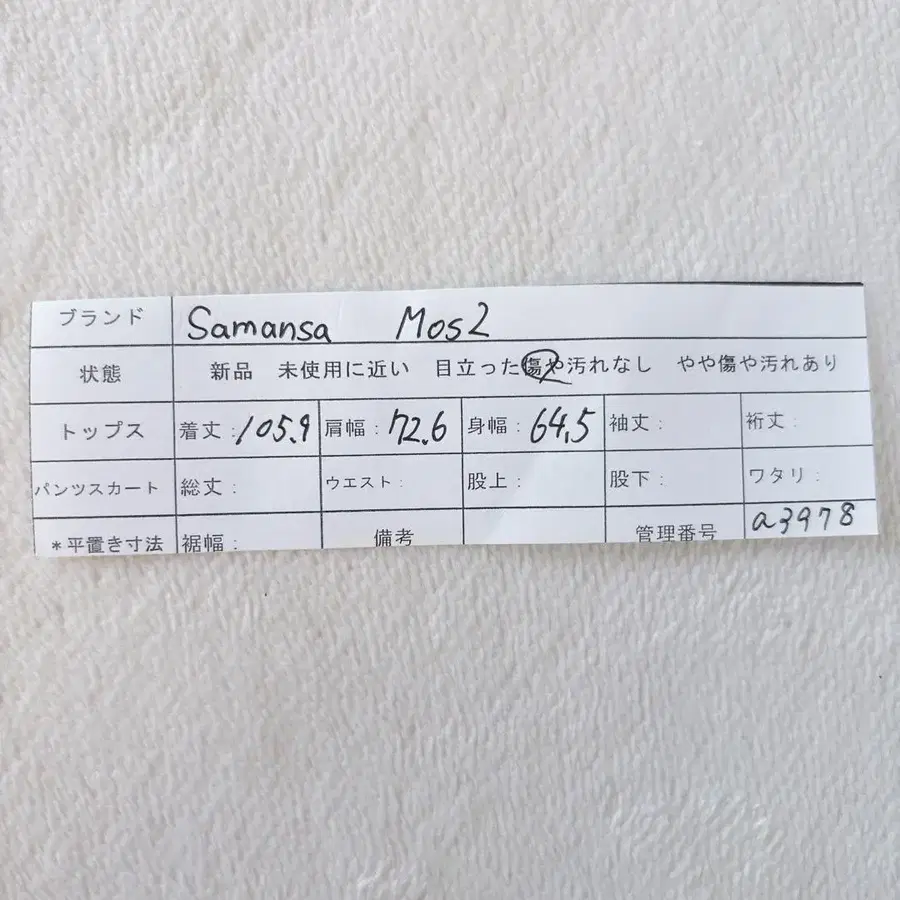 ブランド Samansa Mos2
状態 新品 未使用に近い 目立った傷や汚れなし やや傷や汚れあり
トップス 着丈：105.9 肩幅：72.6 身幅：64.5 袖丈： 裄丈：
パンツスカート 総丈： ウエスト： 股上： 股下： ワタリ：
＊平置き寸法 裾幅： 備考 管理番号 a3978